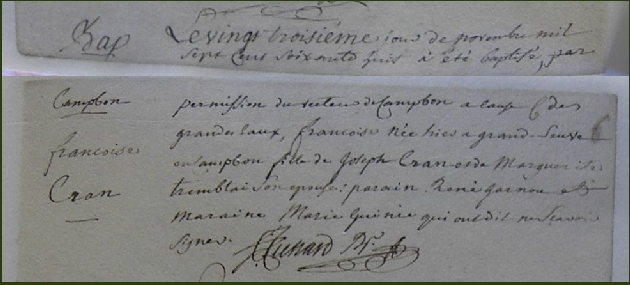 Bap
Le vingt troisième jour de novembre mil
sept cens soixante huit à été baptisé, par
Campbon
permission du recteur de Campbon a cause des
grandes eaux, francoise née hier a grand
francoise
en Campbon fille de Joseph Cran et de Marguerite
Cran
tremblai son epouse: parain René
maraine Marie Guinée qui ont dit ne scavoir
signer.